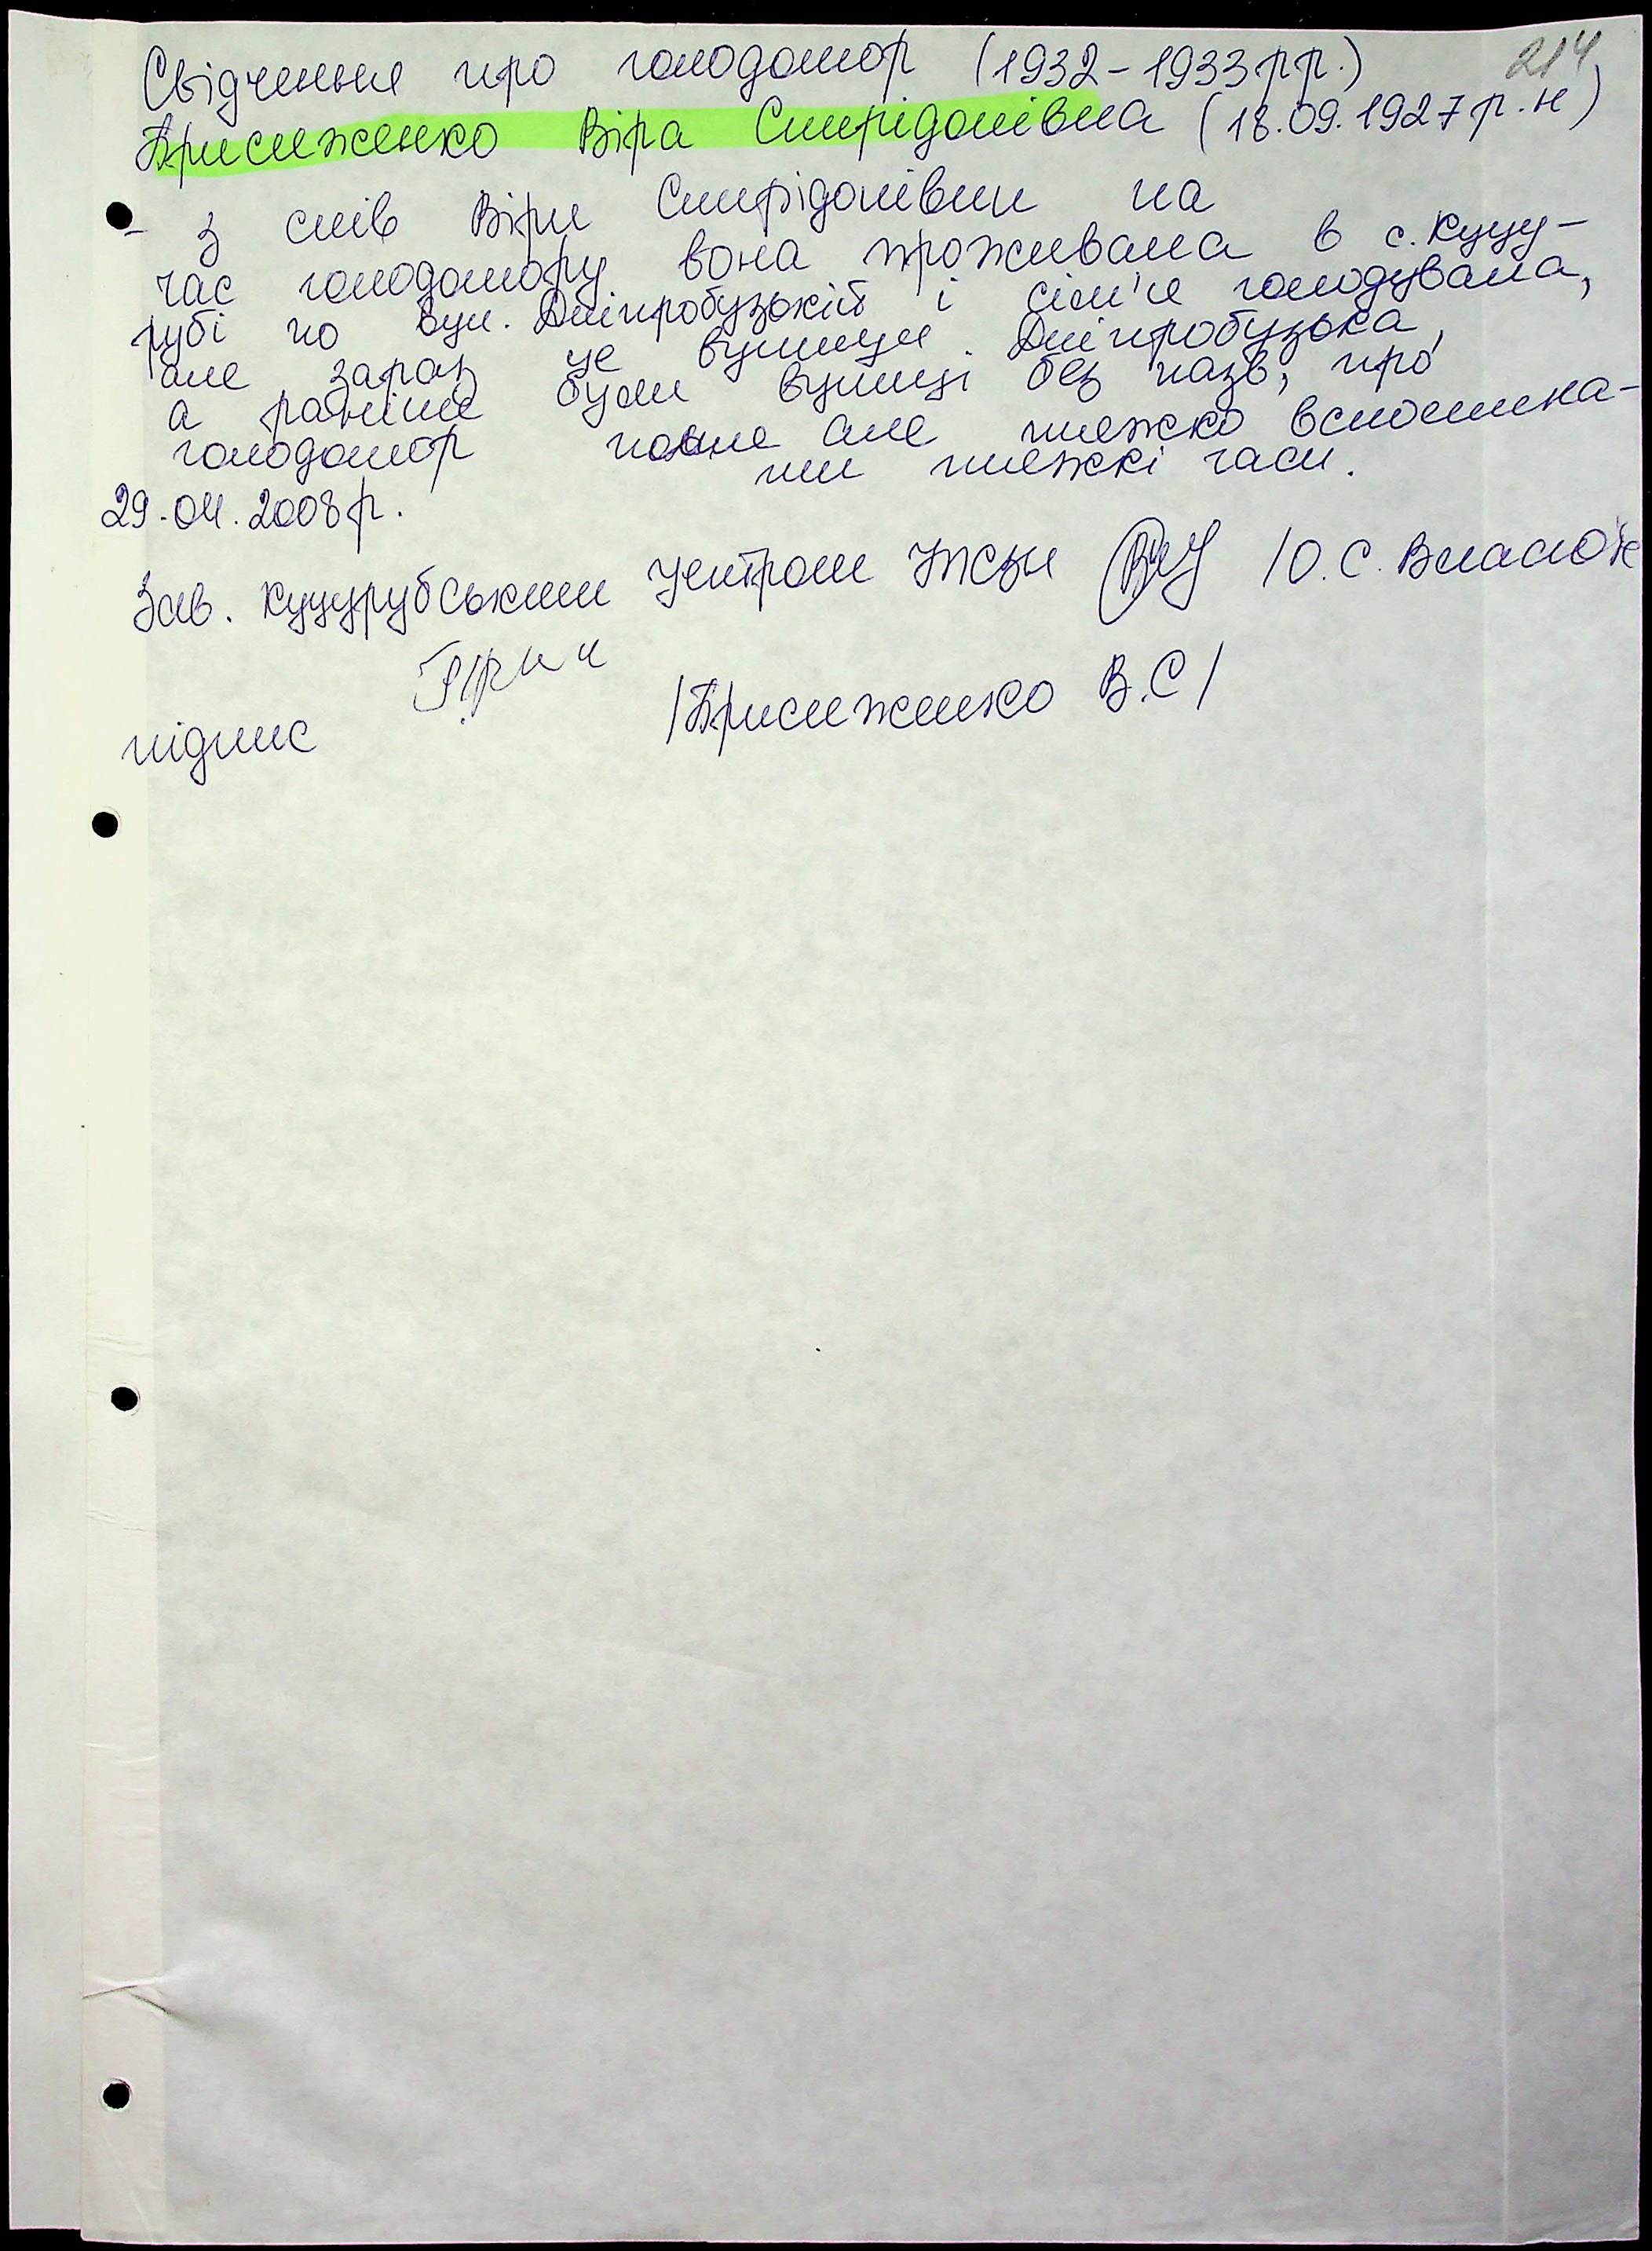 214
Свідчення про голодомор (1932-1933 рр.)
Присяженко Віра Спирідонівна (18.09.1927 р.н)
- З слів Віри Спирідонівни на
час голодомору вона проживала в с. Куцу-
рубі по вул. Дніпробузькій і сім'я голодувала,
але зараз це вулиця Дніпробузька,
а раніше були вулиці без назв, про
голодомор але тяжко вспомина-
ти тяжкі часи.
29.04.2008 р.
Зав. Куцурубським центром ЮСЗН /О.С.
підпис /Присяженко В.С/